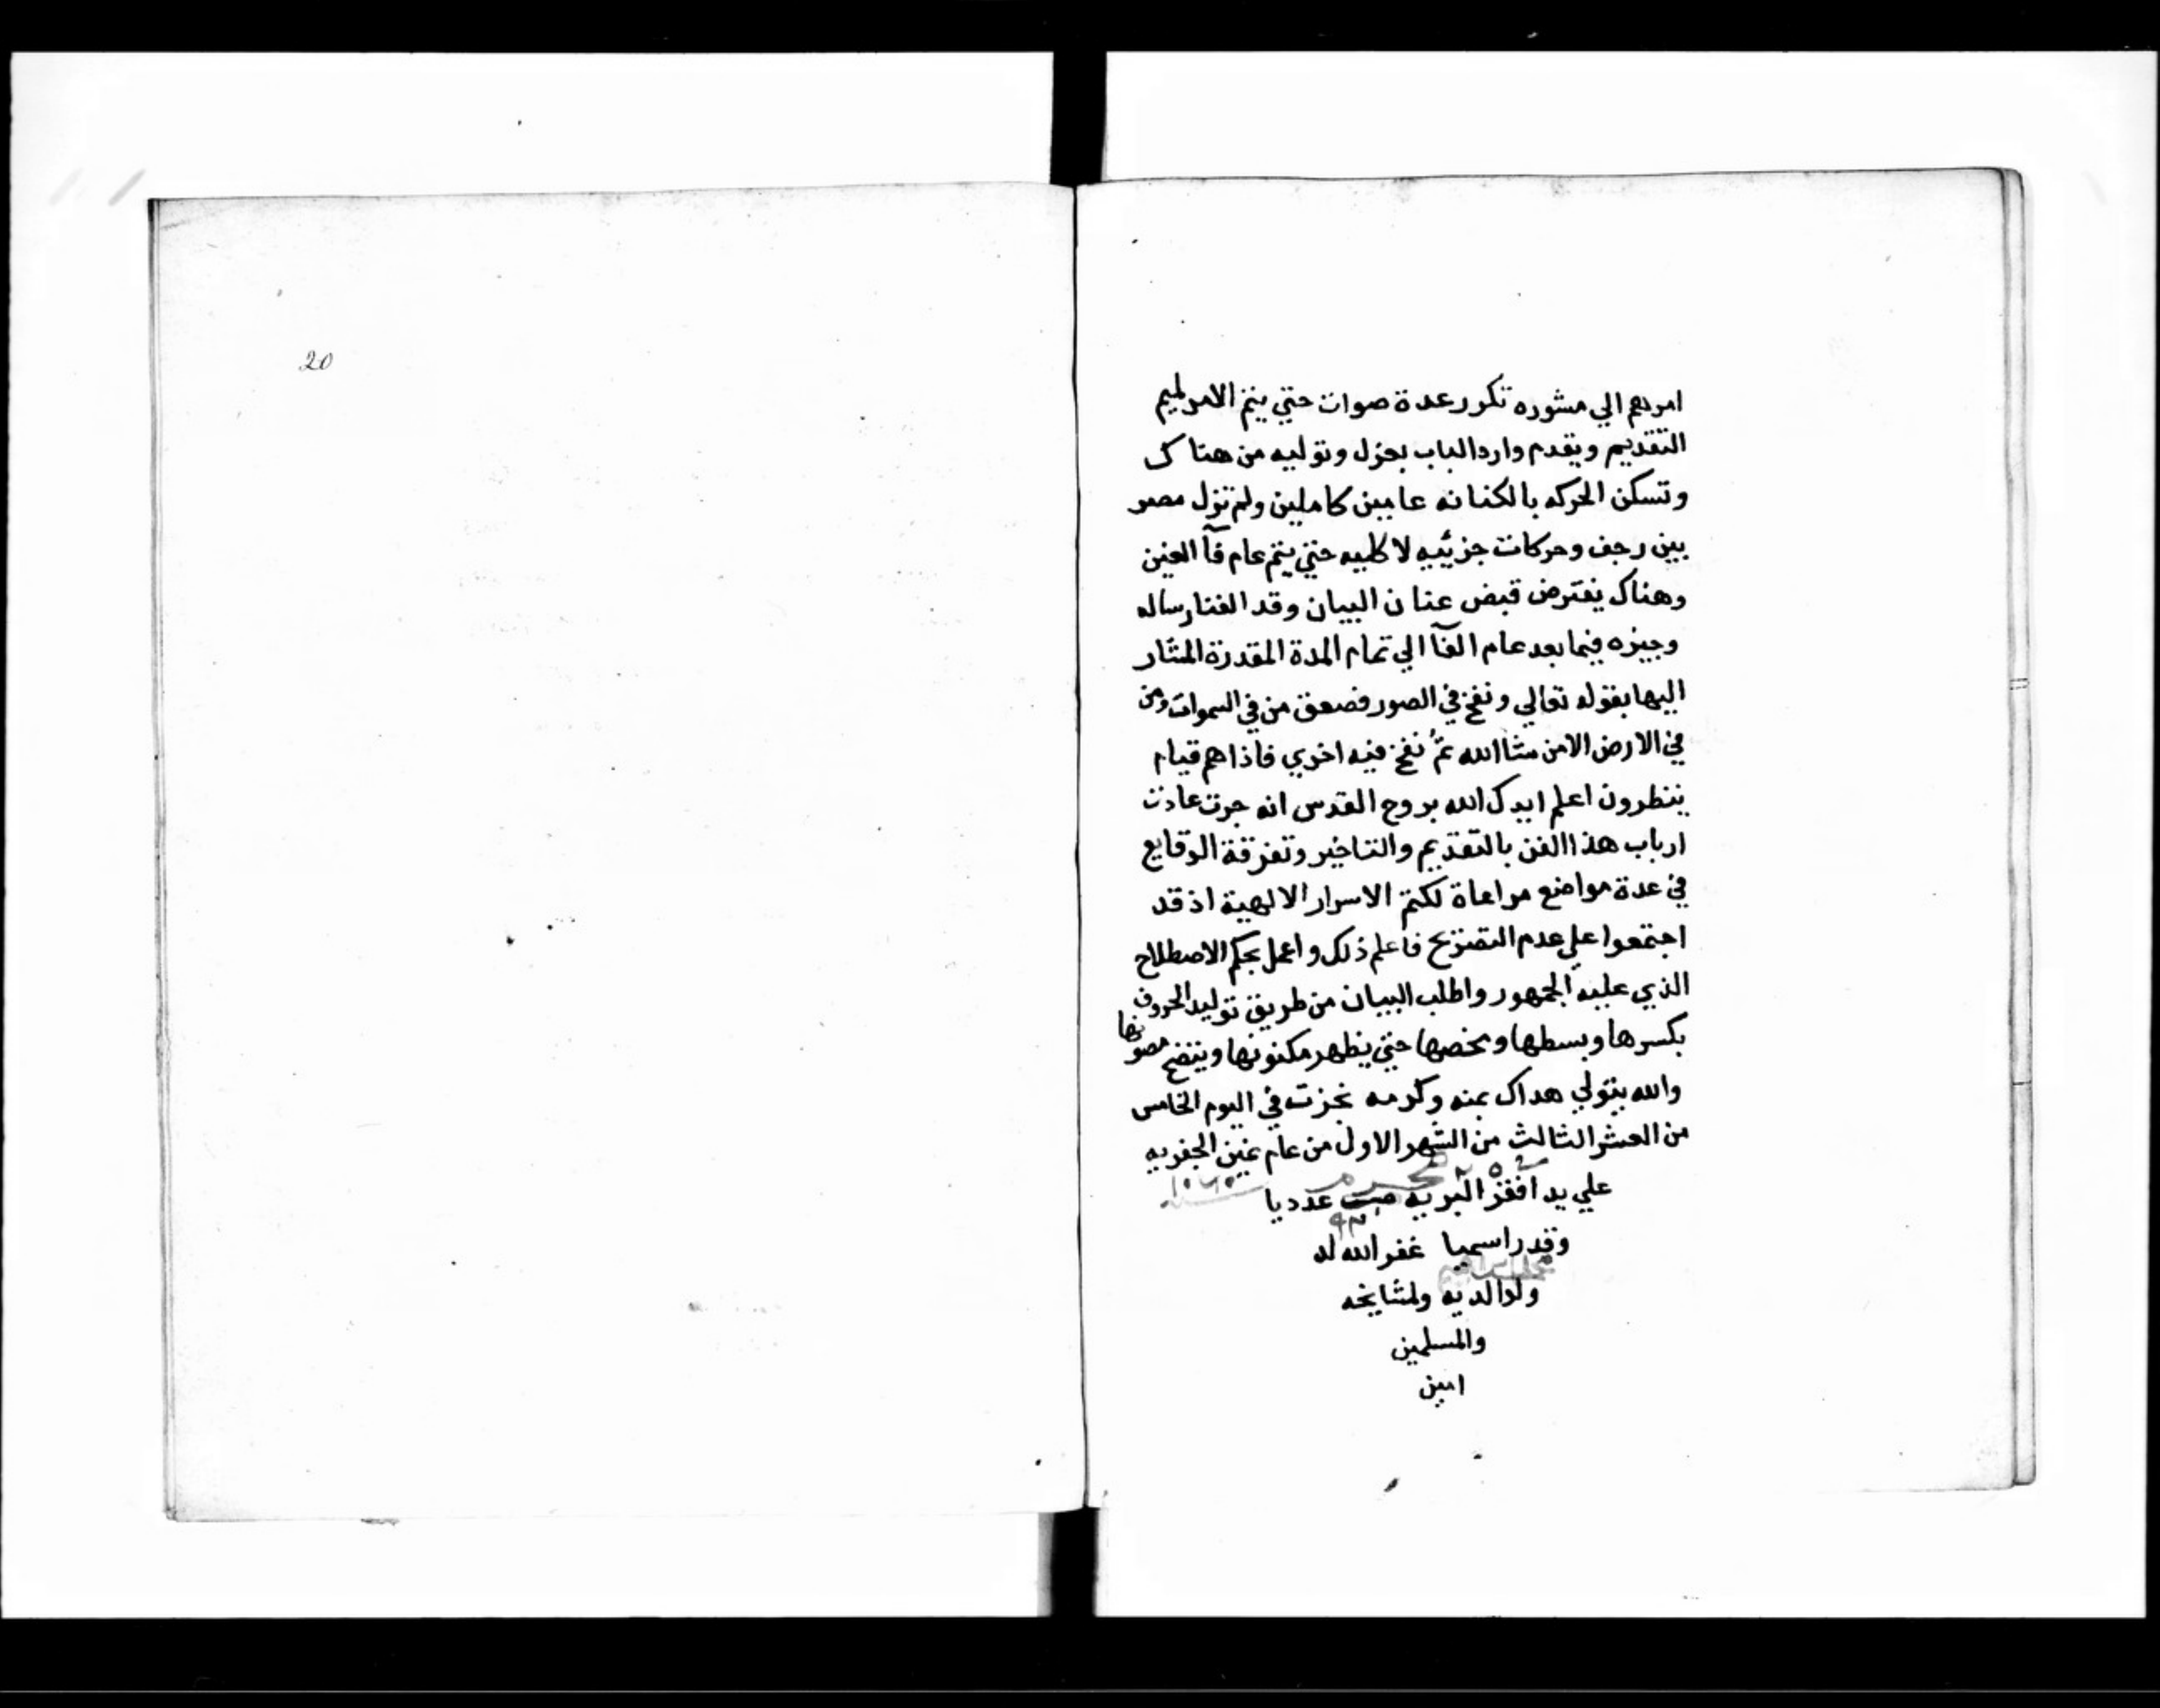 امرهم الي مشوره تكرر عدة صوات حتي يتم الامر لميم
التقديم ويقدم وارد الباب بعزل وتوليه من هناك
وتسكن الحركه بالكنانه عامين كاملين ولم تزل مصر
بين رجف وحركات جزئيه لا كليه حتي يتم عام فآ الغين
وهناك يفترض قبض عنان البيان وقد الفنا رساله
وجيزه فيما بعد عام الفآ الي تمام المدة المقدرة المشار
اليها بقوله تعالي ونفخ في الصور فصعق من في السموات ومن
في الارض الا من شا الله ثم نفخ فيه اخري فاذا هم قيام
ينظرون اعلم ايدك الله بروح القدس انه جرت عادت
ارباب هذا الفن بالتقديم والتاخير وتفرقة الوقايع
في عدة مواضع مراعاة لكتم الاسرار الالهية اذ قد
اجتمعوا علي عدم التصريح فاعلم ذلك واعمل بحكم الاصطلاح
الذي عليه الجمهور واطلب البيان من طريق توليد الحروف
بكسرها وبسطها ومخضها حتي يظهر مكنونها ويتضح مصونها
والله يتولي هداك بمنه وكرمه نجزت في اليوم الخامس
من العشر الثالث من الشهر الاول من عام غين الجفريه
٢٥ محرم سنة
علي يد افقر البريه عدديا
٩٢
وقدر اسميا غفر الله له
ولوالديه ولمشايخه
والمسلمين
امين
20